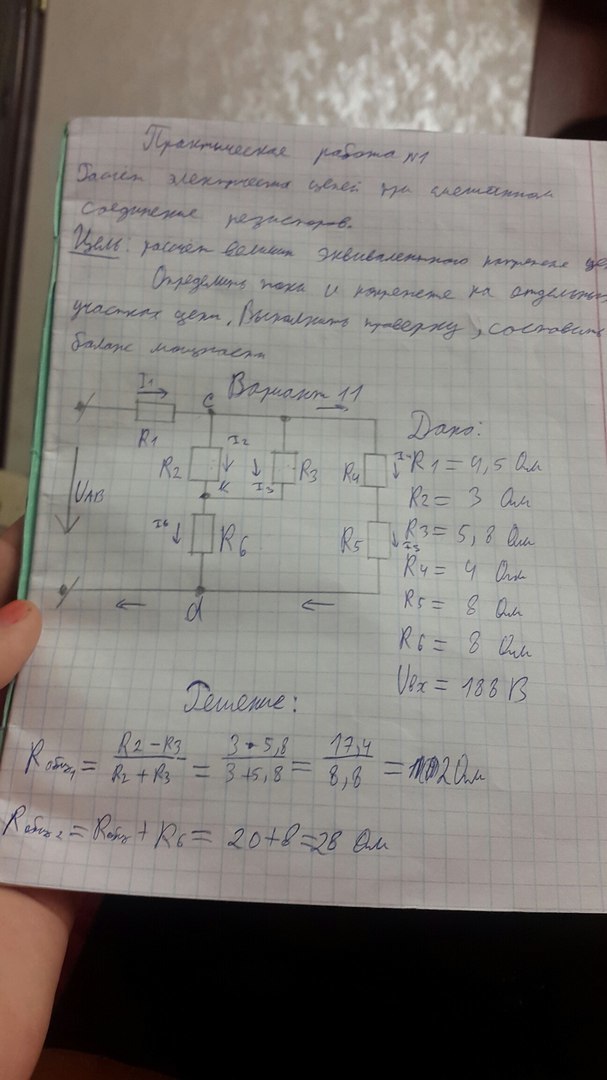 Практическая работа №1
Расчёт электрических цепей при смешанном
соединение резисторов.
Цель: расчёт величин эквивалентного напряжение це
Определить токи и напряжете на отдельны
участках цепи, Выполнить проверку, составить
баланс мощности
Вариант 11
I1
C
R1
R2
I2
I3
R3
R4
I4
UAB
K
I6
R6
R5
I5
d
Дано:
R1 = 4,5 Ом
R2 = 3 Ом
R3 = 5,8 Ом
R4 = 4 Ом
R5 = 8 Ом
R6 = 8 Ом
Uвх = 188 В
Решение:
Rобщ1 = R2 - R3 / R2 + R3 = 3 · 5,8 / 3 + 5,8 = 17,4 / 8,8 = 2 Ом
Rобщ2 = Rобщ + R6 = 20 + 8 = 28 Ом